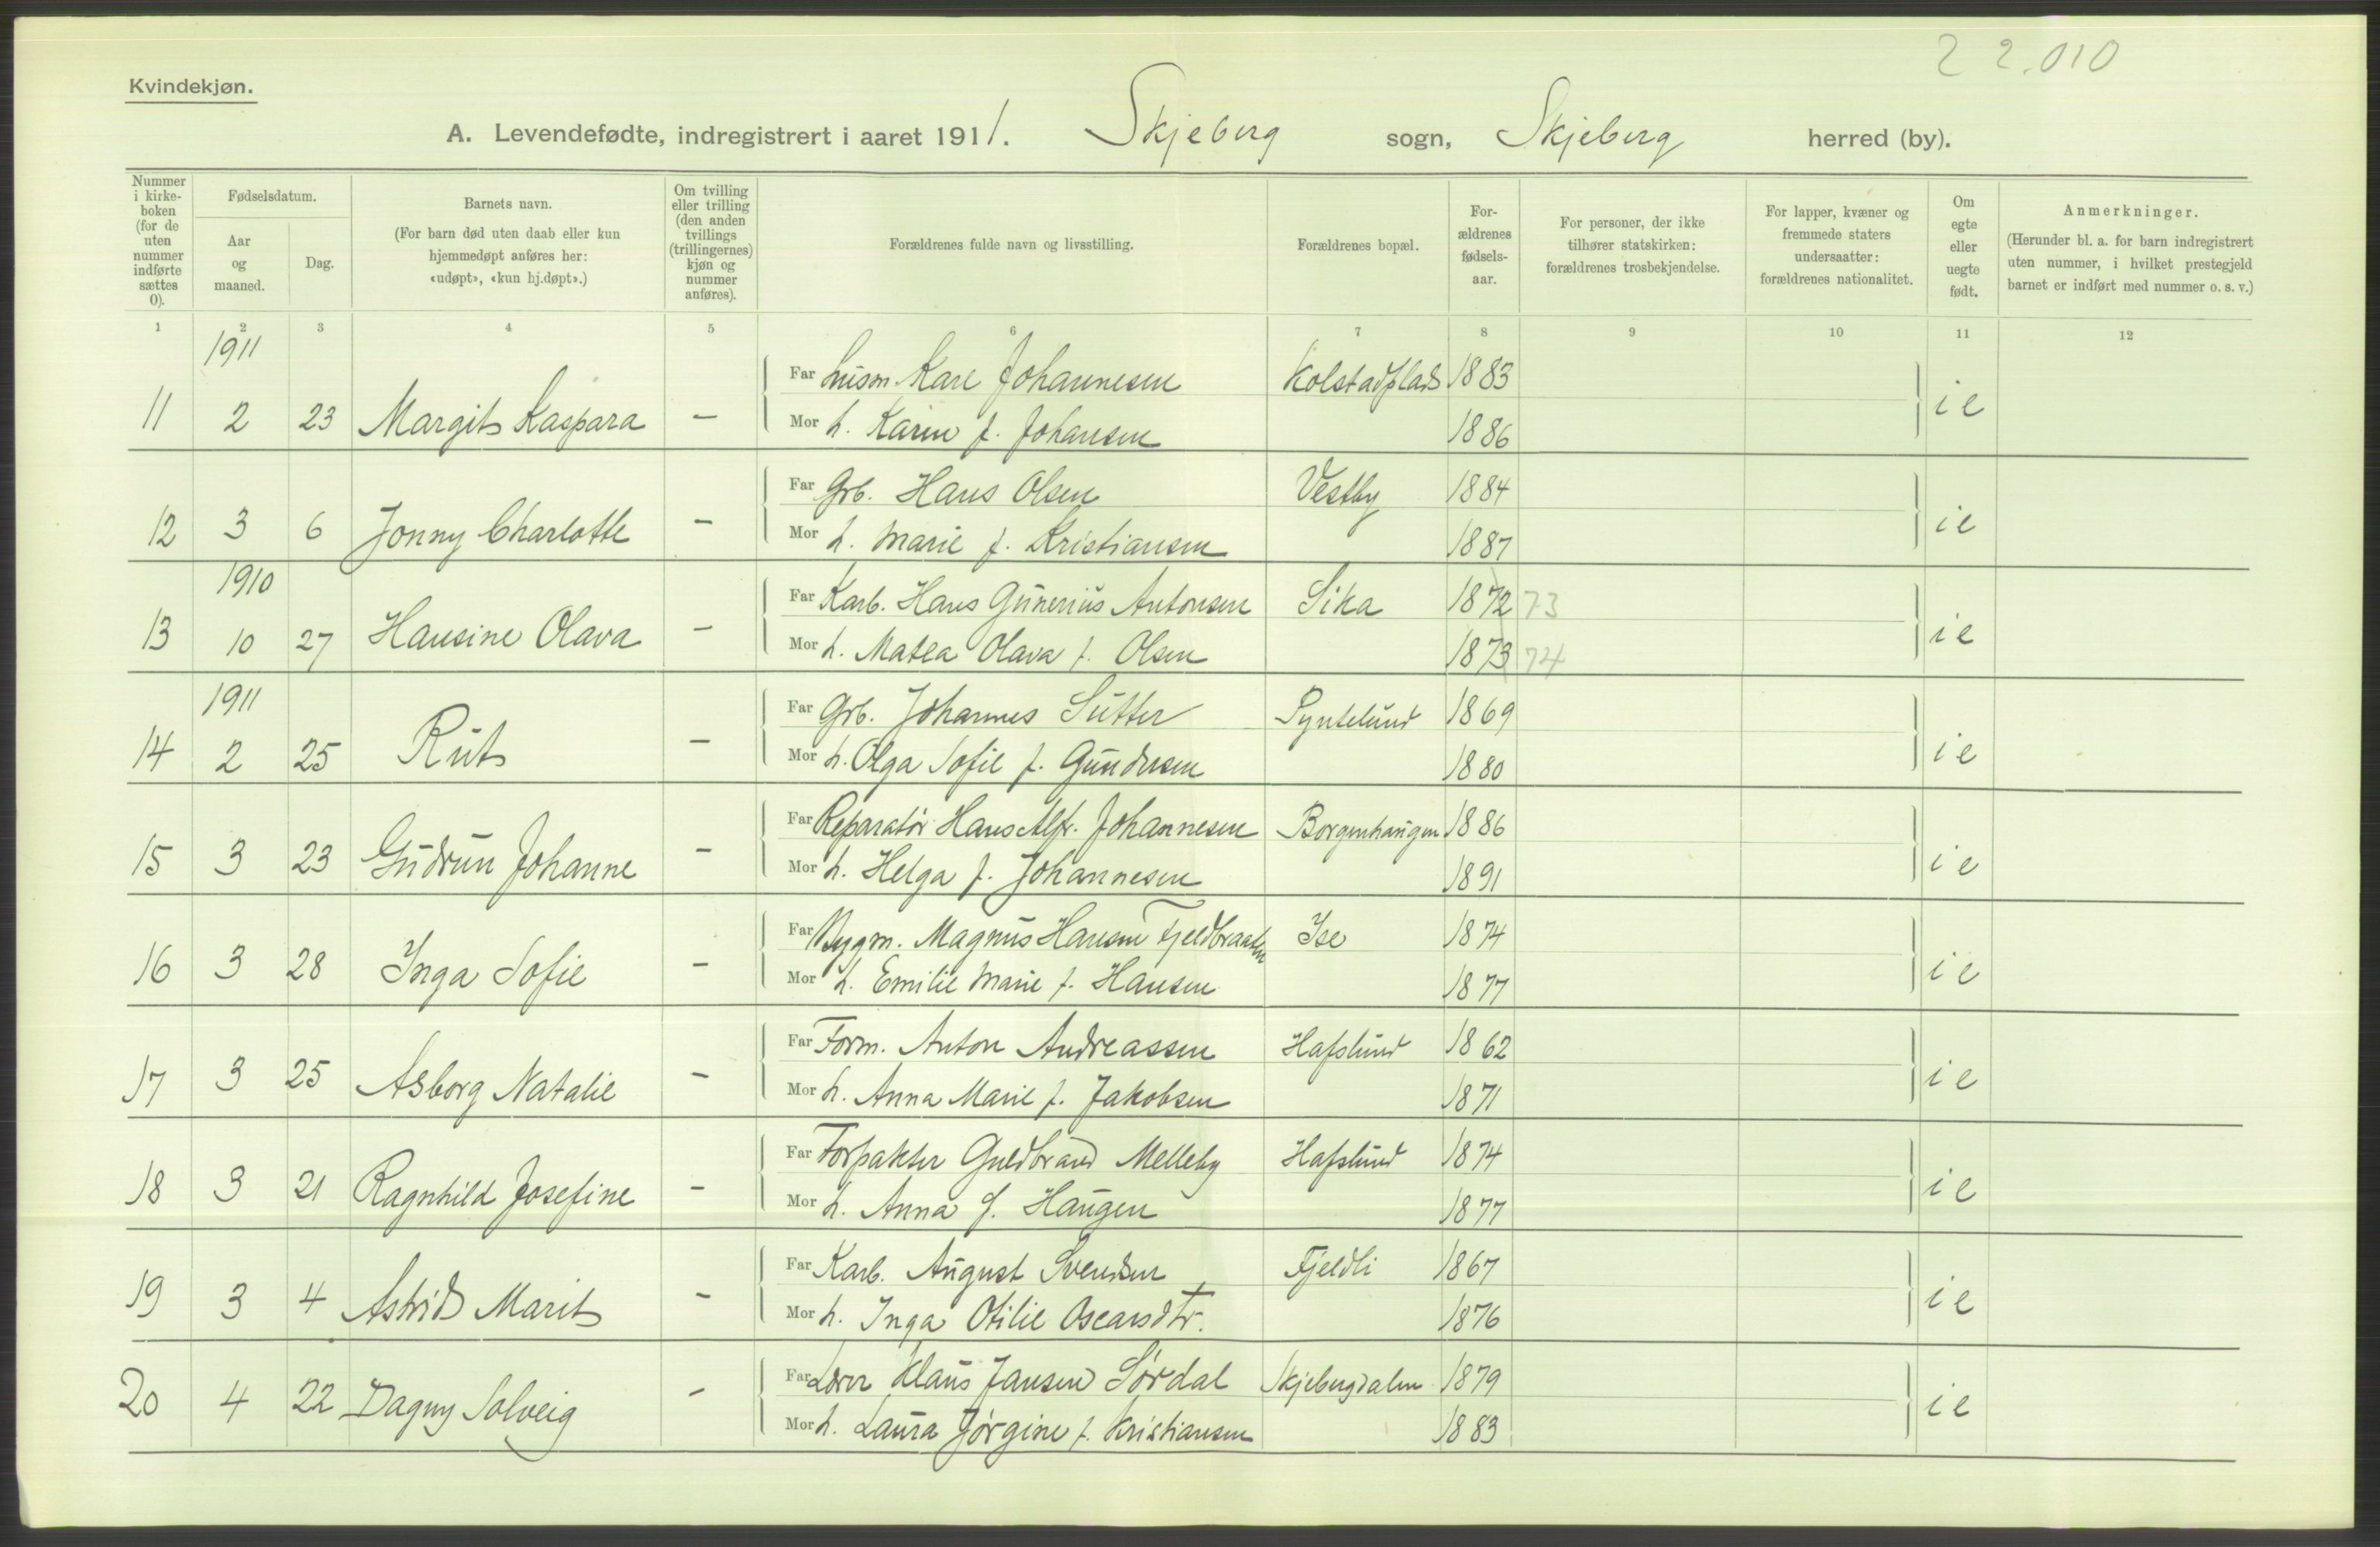 2 2.010
Kvindekjøn.
A. Levendefødte, indregistrert i aaret 1911. Skjeberg sogn, Skjeberg herred (by).
Nummer i kirkeboken (for de uten nummer indførte sættes 0).
Fødselsdatum.
Aar og maaned.
Dag.
Barnets navn.
(For barn død uten daab eller kun hjemmedøpt anføres her: «udøpt», «kun hj.døpt».)
Om tvilling eller trilling (den anden tvillings (trillingernes) kjøn og nummer anføres).
Forældrenes fulde navn og livsstilling.
Forældrenes bopæl.
Forældrenes fødselsaar.
For personer, der ikke tilhører statskirken: forældrenes trosbekjendelse.
For lapper, kvæner og fremmede staters undersaatter: forældrenes nationalitet.
Om egte eller uegte født.
Anmerkninger.
(Herunder bl. a. for barn indregistrert uten nummer, i hvilket prestegjeld barnet er indført med nummer o. s. v.)
1 2 3 4 5 6 7 8 9 10 11 12
1911
Far Husm. Kare Johannesen Kolstadplads 1883
11 2 23 Margit Kaspara – ie
Mor h. Karen f. Johansen 1886
Far Grb. Hans Olsen Vestby 1884
12 3 6 Jonny Charlotte – ie
Mor h. Marie f. Kristiansen 1887
1910
Far Karb. Hans Gunerius Antonsen Sika 1872 73
13 10 27 Hansine Olava – ie
Mor h. Matea Olava f. Olsen 1873 74
1911
Far Grb. Johannes Sutter Syntelund 1869
14 2 25 Rut – ie
Mor h. Olga Sofie f. Gundersen 1880
Far Reparatør Hans Alfr. Johannesen Borgenhaugen 1886
15 3 23 Gudrun Johanne – ie
Mor h. Helga f. Johannesen 1891
Far Bygm. Magnus Hansen Fjeldbraaten Ise 1874
16 3 28 Inga Sofie – ie
Mor h. Emilie Marie f. Hansen 1877
Far Form. Anton Andreassen Hafslund 1862
17 3 25 Asborg Natalie – ie
Mor h. Anna Marie f. Jakobsen 1871
Far Forpakter Guldbrand Melleby Hafslund 1874
18 3 21 Ragnhild Josefine – ie
Mor h. Anna f. Haugen 1877
Far Karb. August Svendsen Fjeldli 1867
19 3 4 Astrid Marit – ie
Mor h. Inga Otilie Oscarsdtr. 1876
Far Lærer Klaus Jansen Sørdal Skjebergdalen 1879
20 4 22 Dagny Solveig – ie
Mor h. Laura Jørgine f. Kristiansen 1883